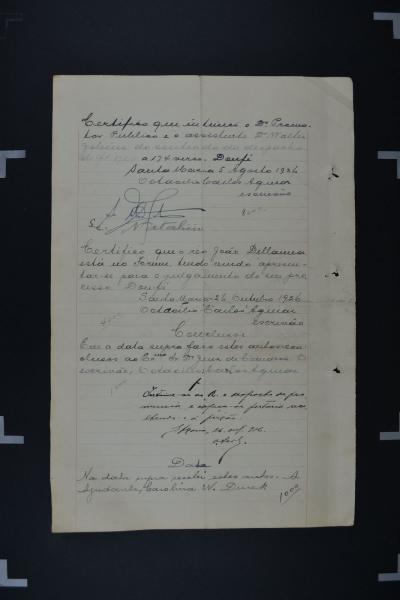 Certifico que intimei o Dr. Promo-
tor Publico e o assistente Dr. Walter
do conteudo do despacho
de fl. a 174 verso. Doufé
Santa Maria 5 Agosto 1926
Octacilio Carlos Aguiar
escrivão
Certifico que o reo João Bellamor
está no Forum, tendo vindo apresen-
tar-se para o julgamento de seu pro-
cesso. Doufé
Santa Maria 26 Outubro 1926
Octacilio Carlos Aguiar
Escrivão
Conclusos
Em a data supra faço estes autos con-
clusos ao Exmo Sr Dr Juiz de Comarca. O
escrivão, Octacilio Carlos Aguiar
Intime-se ao R. o despacho de pro-
nuncia e
a prisão
S. Maria, 26.
Data
Na data supra recebi estes autos. A
Ajudante, Carolina W. Dureck